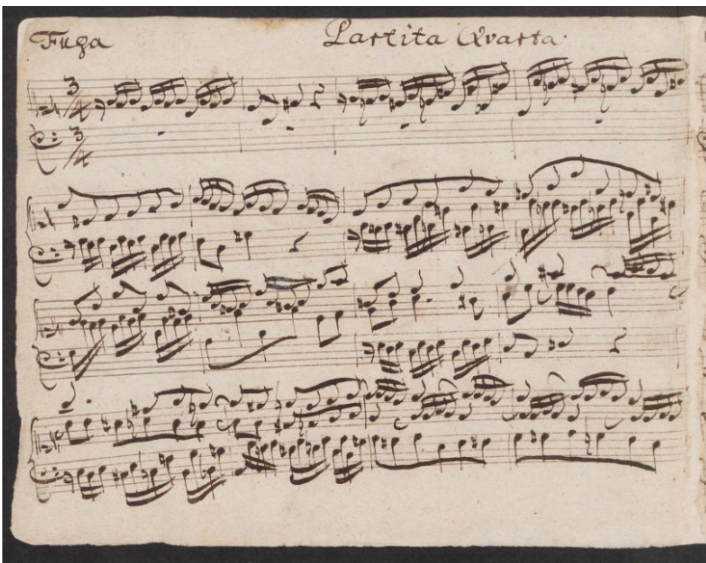 Fuga Partita Qvarta.
3/4
3/4